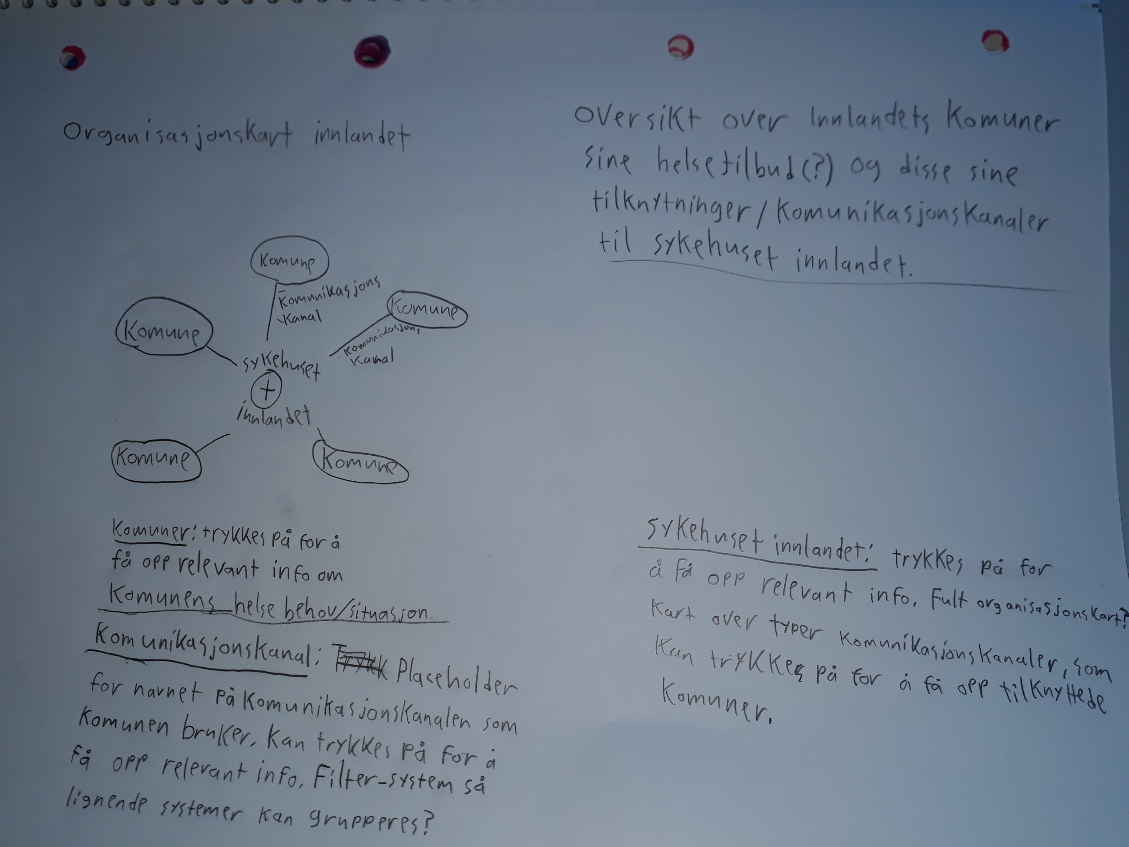 Organisasjonskart innlandet
Komune
Komunikasjons
Kanal
Komune
Komunikasjons
Kanal
Komune
sykehuset
+
innlandet
Komune
Komune
Komuner: trykkes på for å
få opp relevant info om
Komunens helse behov/situasjon.
Komunikasjonskanal: Trykk Placeholder
for navnet på Komunikasjonskanalen som
Komunen bruker. Kan trykkes på for å
få opp relevant info. Filter-system så
lignende systemer kan grupperes?
Oversikt over Innlandets Komuner
sine helsetilbud(?) og disse sine
tilknytninger/Komunikasjonskanaler
til sykehuset innlandet.
Sykehuset innlandet: trykkes på for
å få opp relevant info. Fult organisasjonskart?
Kart over typer Komunikasjonskanaler, som
Kan trykkes på for å få opp tilknyttede
Komuner.